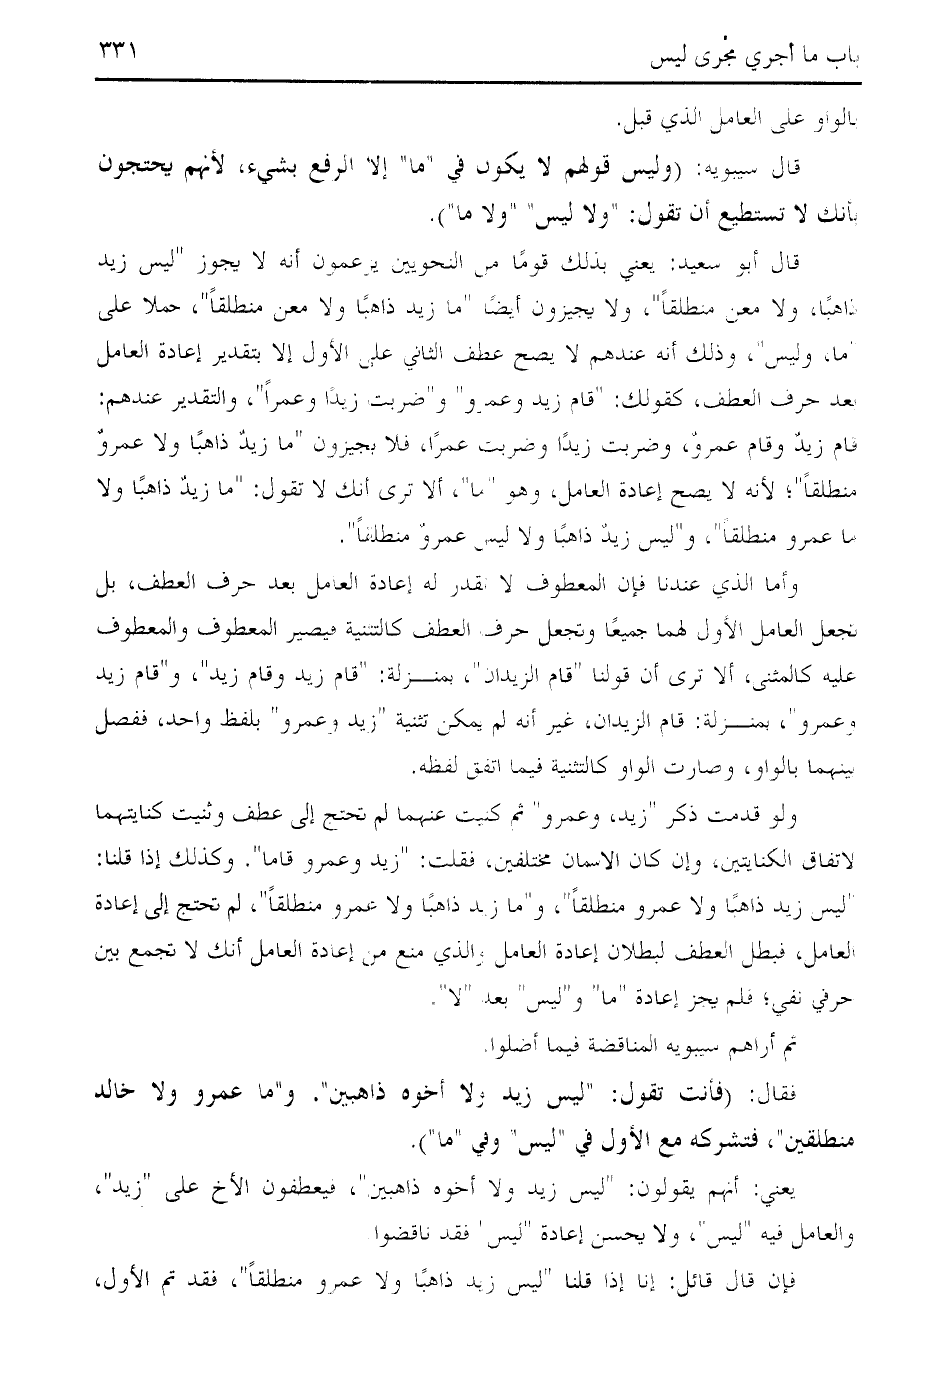 باب ما أجري مجْرى ليس ٣٣١
بالواو على العامل الذي قبل.
قال سيبويه: (وليس قولهم لا يكون في "ما" إلا الرفع بشيء، لأنهم يحتجون
بأنك لا تستطيع أن تقول: "ولا ليس" "ولا ما").
قال أبو سعيد: يعني بذلك قومًا من النحويين يزعمون أنه لا يجوز "ليس زيد
ذاهبًا، ولا معن منطلقاً"، ولا يجيزون أيضًا "ما زيد ذاهبًا ولا معن منطلقاً"، حملا على
"ما، وليس"، وذلك أنه عندهم لا يصح عطف الثاني على الأول إلا بتقدير إعادة العامل
بعد حرف العطف، كقولك: "قام زيد وعمرو" و"ضربت زيدًا وعمراً"، والتقدير عندهم:
قام زيدٌ وقام عمروٌ، وضربت زيدًا وضربت عمرًا، فلا يجيزون "ما زيدٌ ذاهبًا ولا عمروٌ
منطلقاً"؛ لأنه لا يصح إعادة العامل، وهو "ما"، ألا ترى أنك لا تقول: "ما زيدٌ ذاهبًا ولا
ما عمرو منطلقاً"، و"ليس زيدٌ ذاهبًا ولا ليس عمروٌ منطلقاً".
وأما الذي عندنا فإن المعطوف لا نقدر له إعادة العامل بعد حرف العطف، بل
نجعل العامل الأول لهما جميعًا ونجعل حرف العطف كالتثنية فيصير المعطوف والمعطوف
عليه كالمثنى، ألا ترى أن قولنا "قام الزيدان"، بمنـــزلة: "قام زيد وقام زيد"، و"قام زيد
وعمرو"، بمنـــزلة: قام الزيدان، غير أنه لم يمكن تثنية "زيد وعمرو" بلفظ واحد، ففصل
بينهما بالواو، وصارت الواو كالتثنية فيما اتفق لفظه.
ولو قدمت ذكر "زيد، وعمرو" ثم كنيت عنهما لم تحتج إلى عطف وثنيت كنايتهما
لاتفاق الكنايتين، وإن كان الاسمان مختلفين، فقلت: "زيد وعمرو قاما". وكذلك إذا قلنا:
"ليس زيد ذاهبًا ولا عمرو منطلقاً"، و"ما زيد ذاهبًا ولا عمرو منطلقاً"، لم تحتج إلى إعادة
العامل، فبطل العطف لبطلان إعادة العامل والذي منع من إعادة العامل أنك لا تجمع بين
حرفي نفي؛ فلم يجز إعادة "ما" و"ليس" بعد "لا".
ثم أراهم سيبويه المناقضة فيما أصلوا.
فقال: (فأنت تقول: "ليس زيد ولا أخوه ذاهبين". و"ما عمرو ولا خالد
منطلقين"، فتشركه مع الأول في "ليس" وفي "ما").
يعني: أنهم يقولون: "ليس زيد ولا أخوه ذاهبين"، فيعطفون الأخ على "زيد"،
والعامل فيه "ليس"، ولا يحسن إعادة "ليس" فقد ناقضوا.
فإن قال قائل: إنا إذا قلنا "ليس زيد ذاهبًا ولا عمرو منطلقاً"، فقد تم الأول،